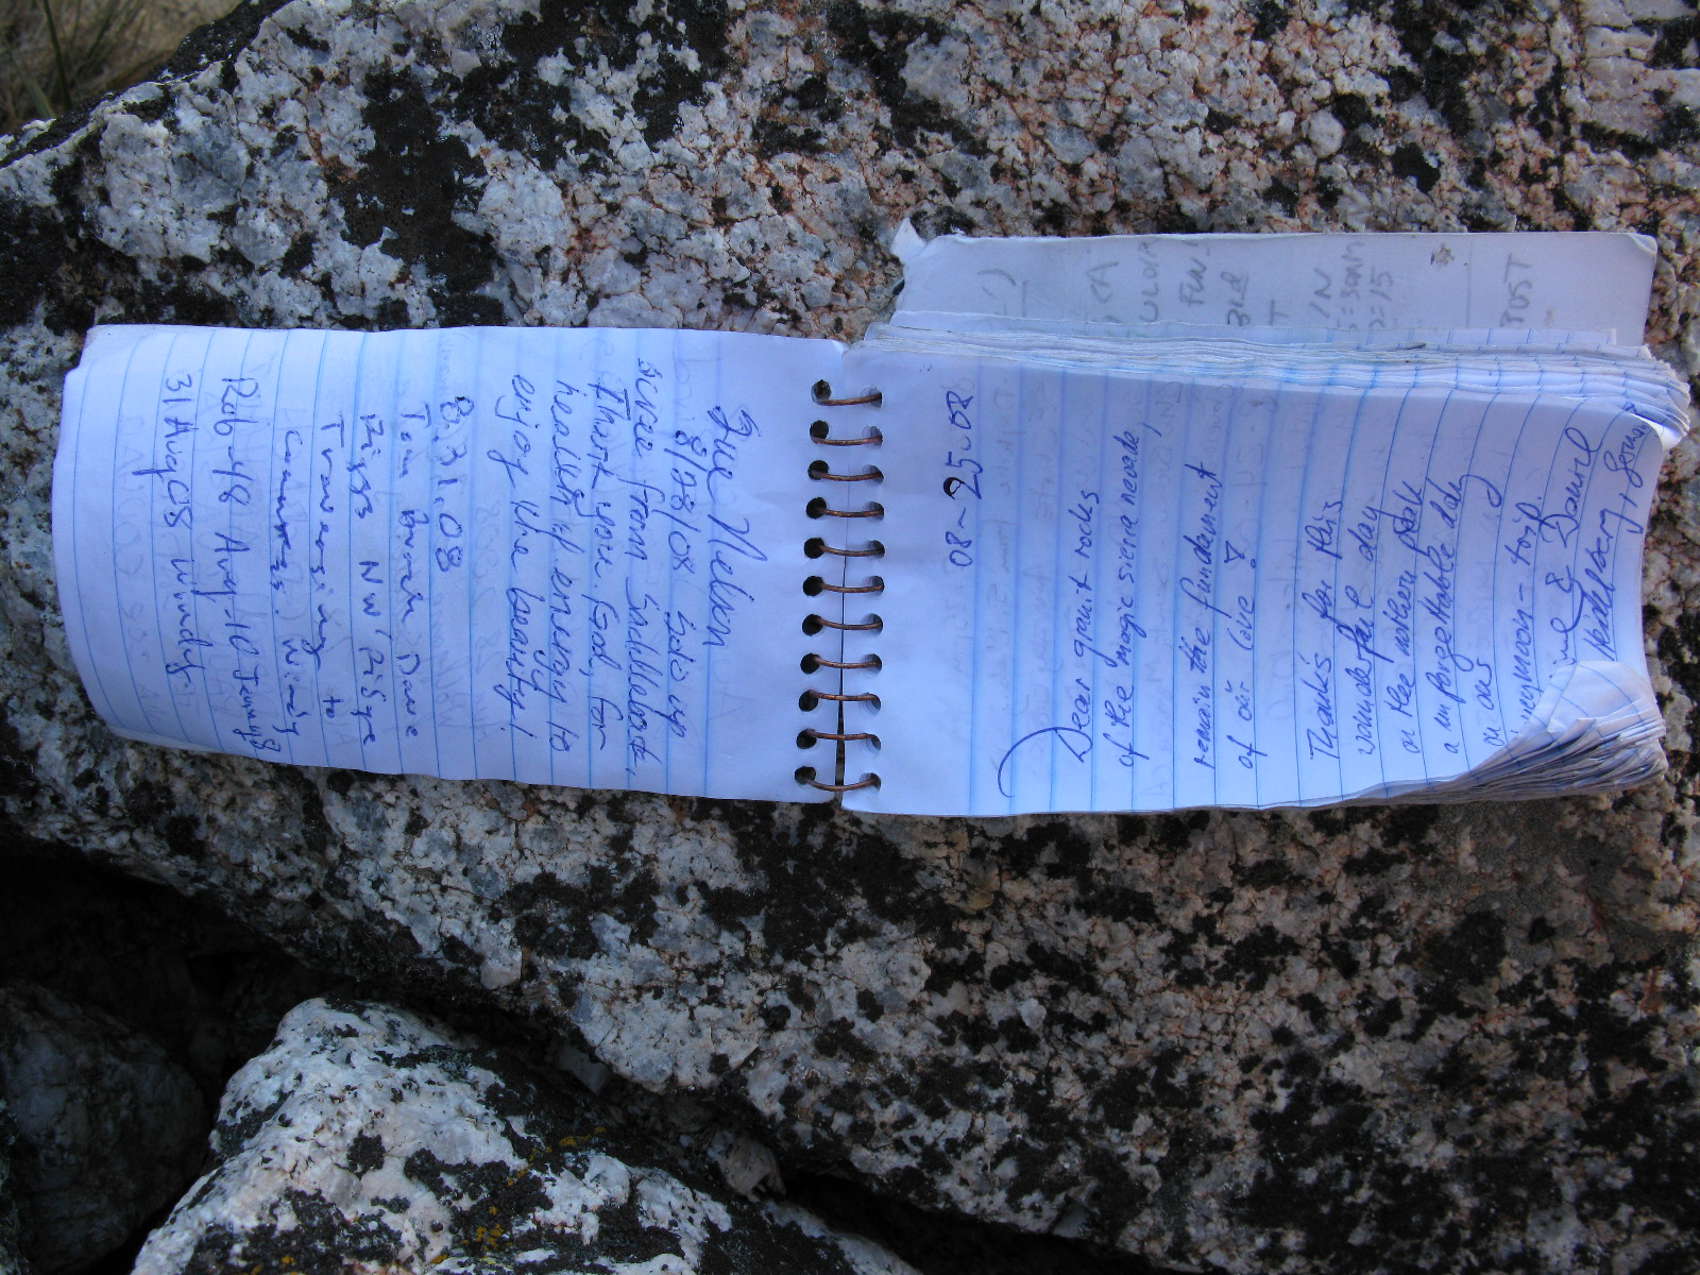 Sue Nelson
8/28/08 Solo up
scree from Saddlerock,
Thank you, God, for
health & energy to
enjoy the beauty!
8.31.08
Tom
NW Ridge
Traversing to
Windy
Rob 48 Aug-10 Jenny 8
31 Aug 08 Windy.
08-25-08
Dear granit rocks
of the magic sierra nevade
remain the fundament
of our love
Thanks for this
wonderfull day
on the nothern peak
a unforgettable day
on our
honeymoon-trip.
& Daniel
Heidelberg, Germ
FUN
3rd
IN
=15
JUST